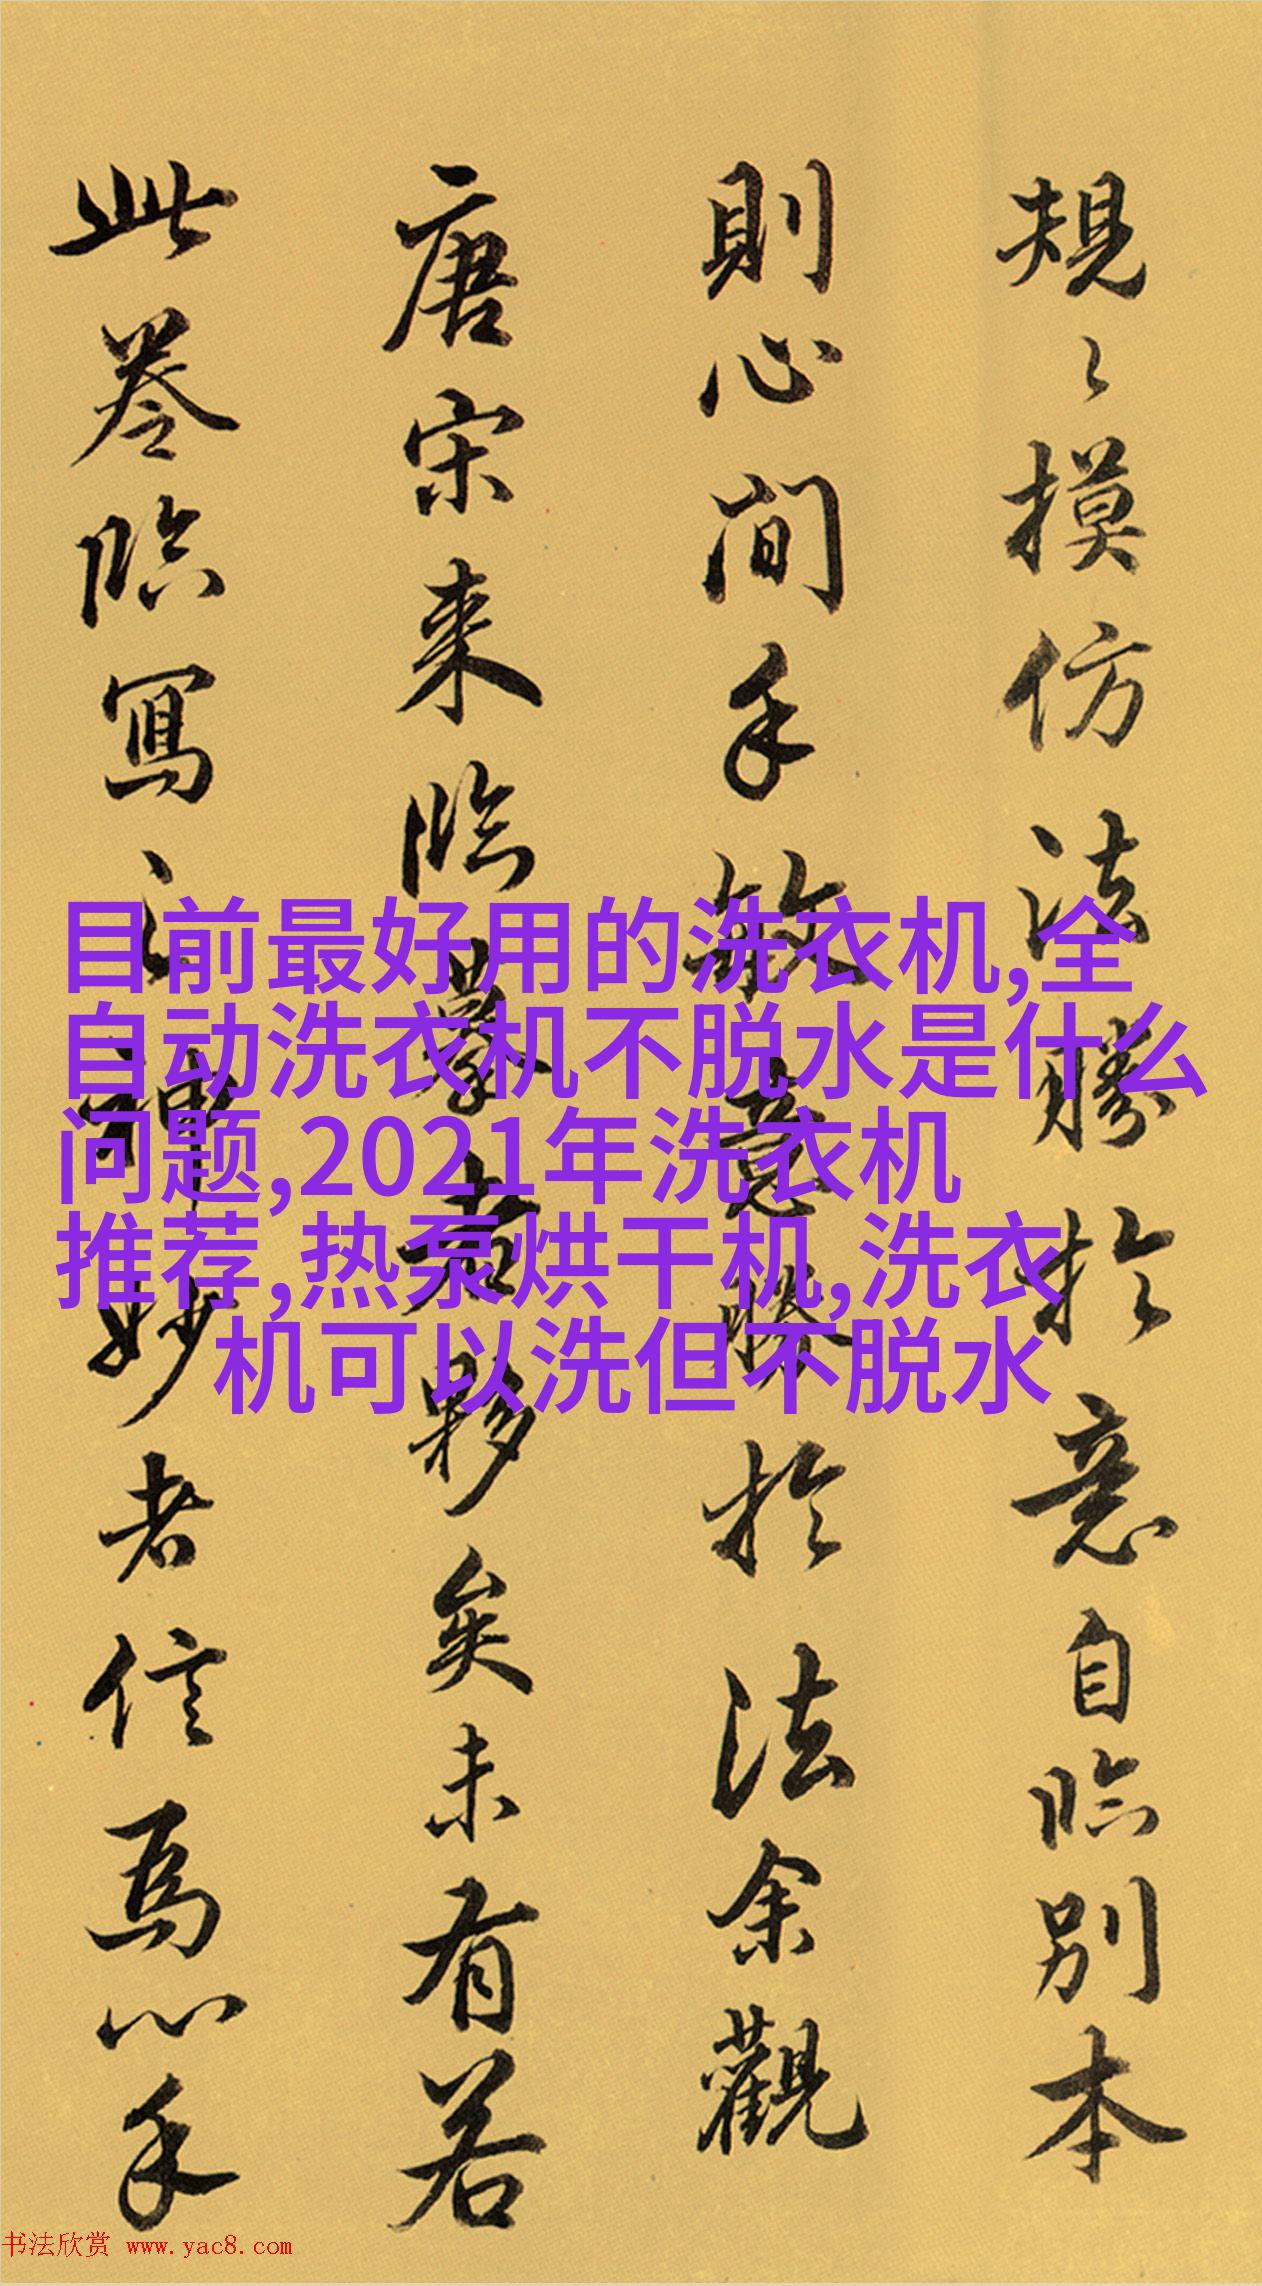 規々摸仿法勝於意自臨别本
則心間手敏意勝於法余觀
唐宋来臨摹者夥矣未有若
此卷臨寫之神妙者信為心手
目前最好用的洗衣机,全
自动洗衣机不脱水是什么
问题,2021年洗衣机
推荐,热泵烘干机,洗衣
机可以洗但不脱水
书法欣赏 www.yac8.com